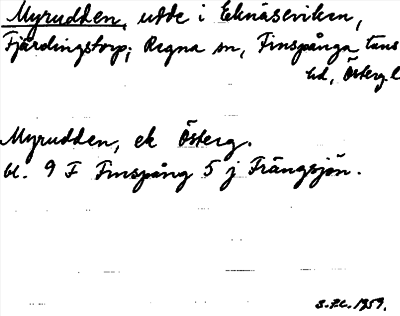 Myrudden, udde i Eknäsviken,
Fjärdingstorp; Regna sn, Finspånga läns
hd, Österg. l
Myrudden, ek Österg.
bl. 9 F Finspång 5 j Trängsjön.
1959.